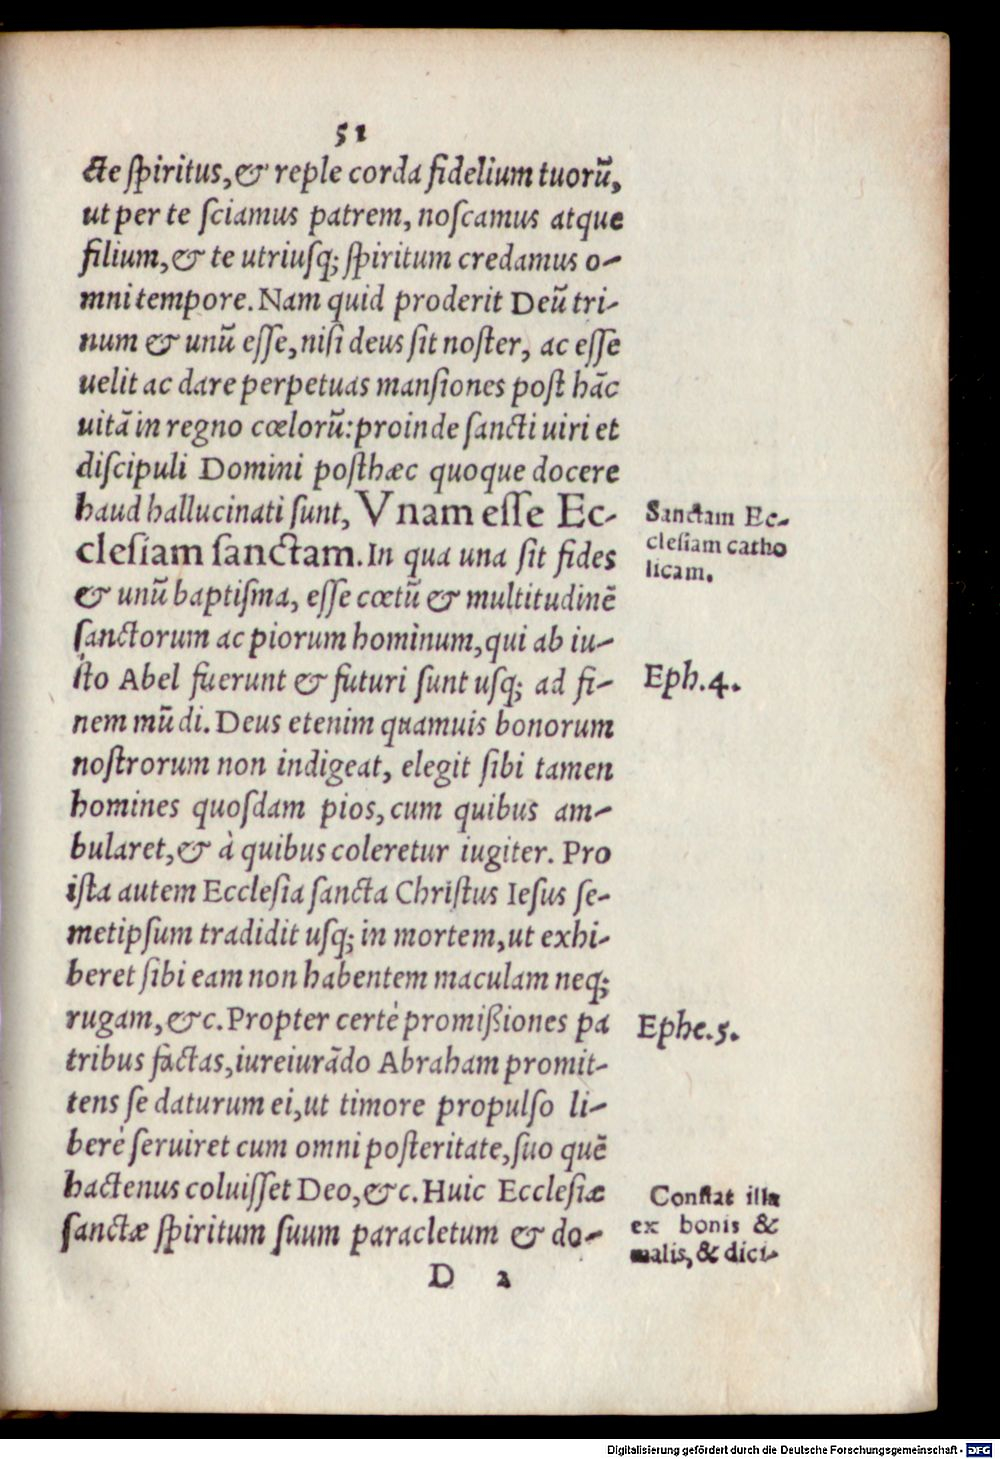 51
cte spiritus, & reple corda fidelium tuorũ,
ut per te sciamus patrem, noscamus atque
filium, & te utriusq; spiritum credamus o-
mni tempore. Nam quid proderit Deũ tri-
num & unũ esse, nisi deus sit noster, ac esse
uelit ac dare perpetuas mansiones post hãc
uitã in regno cœlorũ: proinde sancti uiri et
discipuli Domini posthæc quoque docere
haud hallucinati sunt, Vnam esse Ec-
clesiam sanctam. In qua una sit fides
& unũ baptisma, esse cœtũ & multitudinẽ
sanctorum ac piorum hominum, qui ab iu-
sto Abel fuerunt & futuri sunt usq; ad fi-
nem mũdi. Deus etenim quamuis bonorum
nostrorum non indigeat, elegit sibi tamen
homines quosdam pios, cum quibus am-
bularet, & à quibus coleretur iugiter. Pro
ista autem Ecclesia sancta Christus Iesus se-
metipsum tradidit usq; in mortem, ut exhi-
beret sibi eam non habentem maculam neq;
rugam, &c. Propter certè promißiones pa
tribus factas, iureiurãdo Abraham promit-
tens se daturum ei, ut timore propulso li-
berè seruiret cum omni posteritate, suo quẽ
hactenus coluisset Deo, &c. Huic Ecclesiæ
sanctæ spiritum suum paracletum & do-
D 2
Sanctam Ec-
clesiam catho
licam.
Eph.4.
Ephe.5.
Constat illa
ex bonis &
malis, & dici-
Digitalisierung gefördert durch die Deutsche Forschungsgemeinschaft - DFG